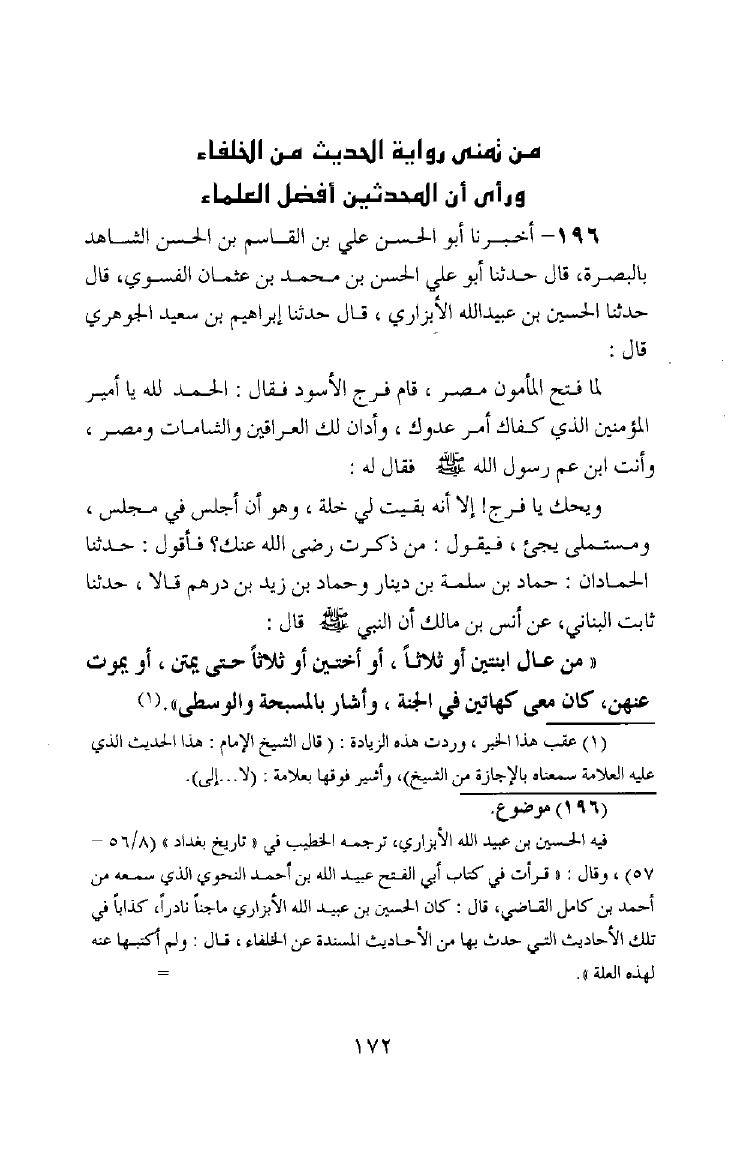 من تمنى رواية الحديث من الخلفاء
ورأى أن المحدثين أفضل العلماء
١٩٦- أخبرنا أبو الحسن علي بن القاسم بن الحسن الشاهد
بالبصرة، قال حدثنا أبو علي الحسن بن محمد بن عثمان الفسوي، قال
حدثنا الحسين بن عبيدالله الأبزاري ، قال حدثنا إبراهيم بن سعيد الجوهري
قال :
لما فتح المأمون مصر ، قام فرج الأسود فقال : الحمد لله يا أمير
المؤمنين الذي كفاك أمر عدوك ، وأدان لك العراقين والشامات ومصر ،
وأنت ابن عم رسول الله ﷺ فقال له :
ويحك يا فرج! إلا أنه بقيت لي خلة ، وهو أن أجلس في مجلس ،
ومستملى يجئ ، فيقول : من ذكرت رضى الله عنك؟ فأقول : حدثنا
الحمادان : حماد بن سلمة بن دينار وحماد بن زيد بن درهم قالا ، حدثنا
ثابت البناني، عن أنس بن مالك أن النبي ﷺ قال :
« من عال ابنتين أو ثلاثاً ، أو أختين أو ثلاثاً حتى يمتن ، أو يموت
عنهن، كان معى كهاتين في الجنة ، وأشار بالمسبحة والوسطى».(١)
(١) عقب هذا الخبر ، وردت هذه الزيادة : ( قال الشيخ الإمام : هذا الحديث الذي
عليه العلامة سمعناه بالإجازة من الشيخ)، وأشير فوقها بعلامة : (لا...إلى).
(١٩٦) موضوع.
فيه الحسين بن عبيد الله الأبزاري، ترجمه الخطيب في « تاريخ بغداد » (٥٦/٨ –
٥٧) ، وقال : « قرأت في كتاب أبي الفتح عبيد الله بن أحمد النحوي الذي سمعه من
أحمد بن كامل القاضي، قال : كان الحسين بن عبيد الله الأبزاري ماجناً نادراً، كذاباً في
تلك الأحاديث التي حدث بها من الأحاديث المسندة عن الخلفاء ، قال : ولم أكتبها عنه
لهذه العلة ». =
١٧٢